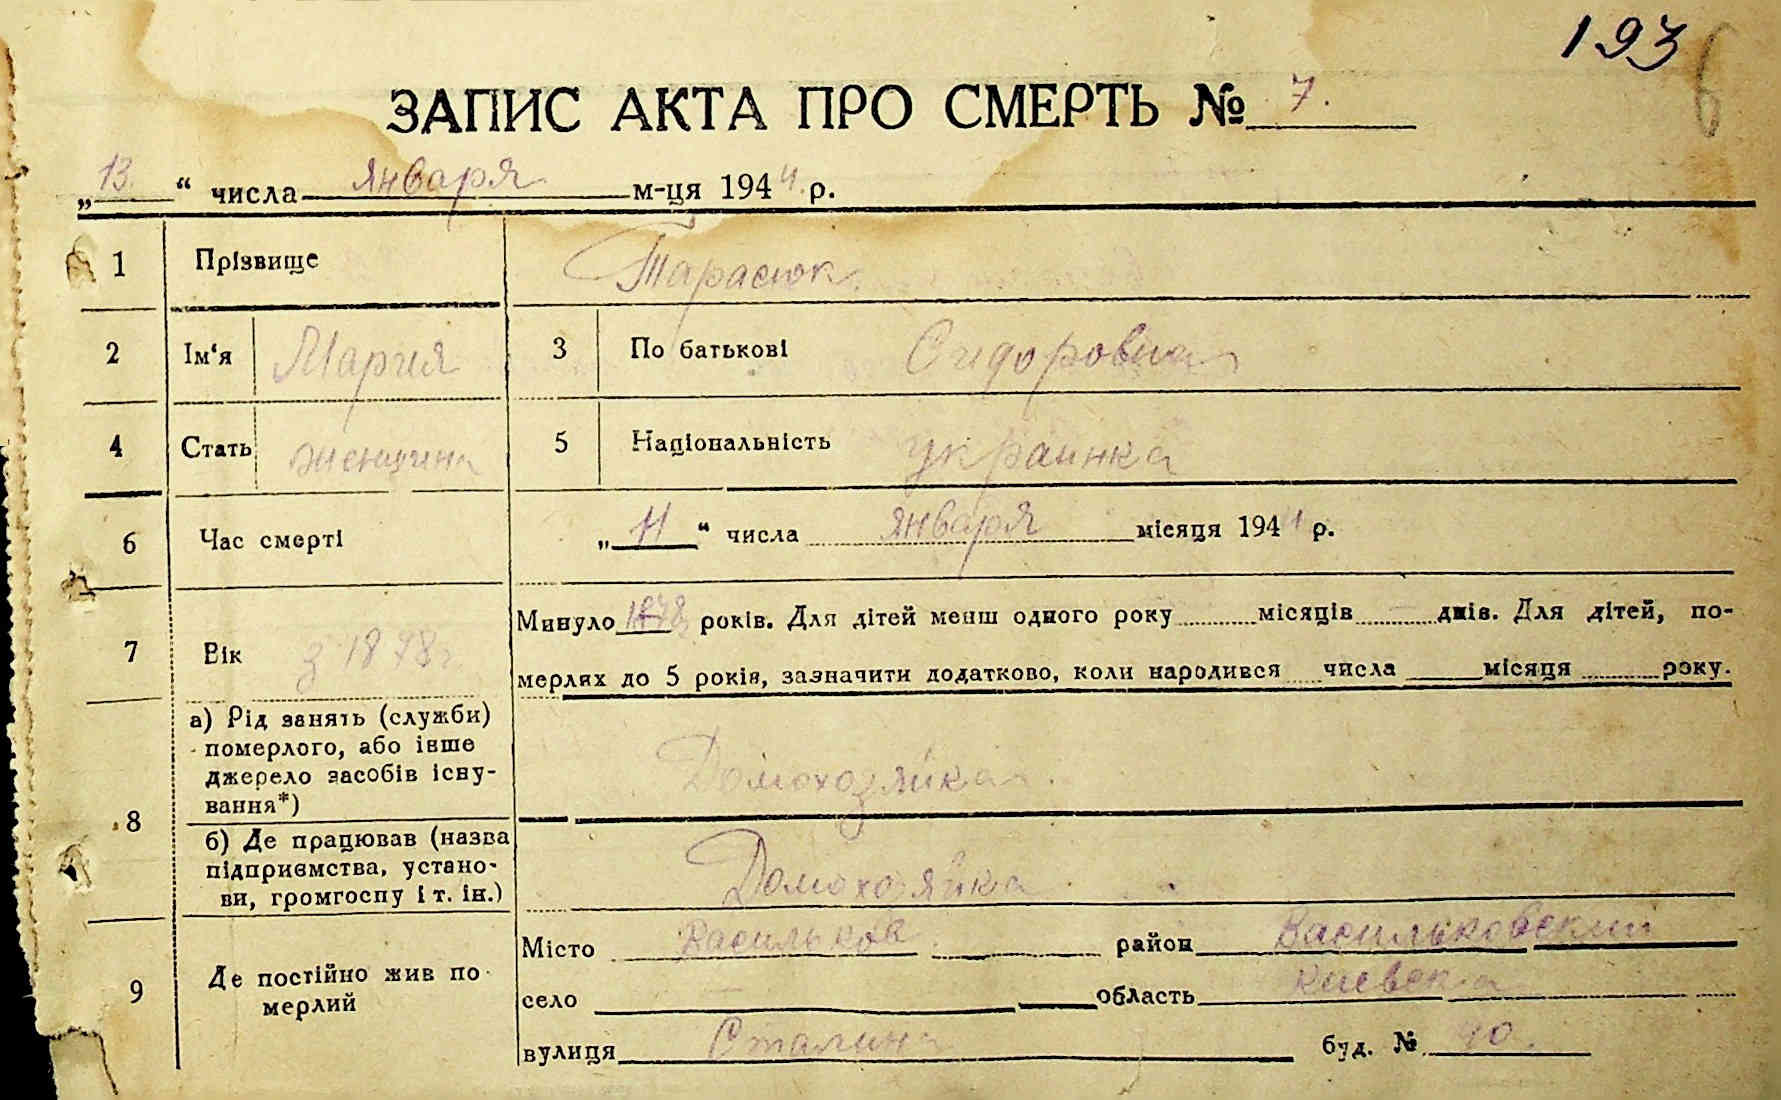 193
ЗАПИС АКТА ПРО СМЕРТЬ № 7.
„13.“ числа января м-ця 1944 р.
1 Прізвище Тарасюк.
2 Ім‘я Мария 3 По батькові Сидоровна
4 Стать женщина 5 Національність украинка
6 Час смерті „11“ числа января місяця 1944 р.
7 Вік з 1878 г.
Минуло 1878 років. Для дітей менш одного року місяців днів. Для дітей, по-
мерлих до 5 років, зазначити додатково, коли народився числа місяця року.
8 а) Рід занять (служби)
померлого, або інше
джерело засобів існу-
вання*)
Домохозяйка.
б) Де працював (назва
підприємства, устано-
ви, громгоспу і т. ін.)
Домохозяйка.
9 Де постійно жив по-
мерлий
Місто Васильков. район Васильковский
село область Киевска
вулиця Сталина буд. № 40.